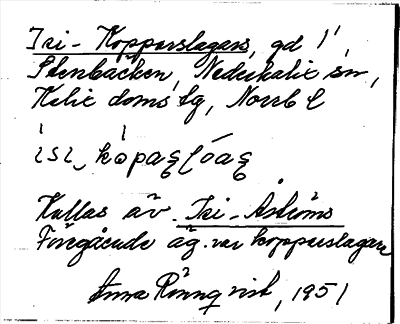 Isi-Kopparslagars, gd 1/1,
Stenbäcken, Nederkalix sn,
Kalix doms. tg, Norrb. l
ìsi‿kòpaʂlóaʂ
Kallas äv. Isi-Åströms
Föregående äg. var kopparslagare
Anna Rönnqvist, 1951